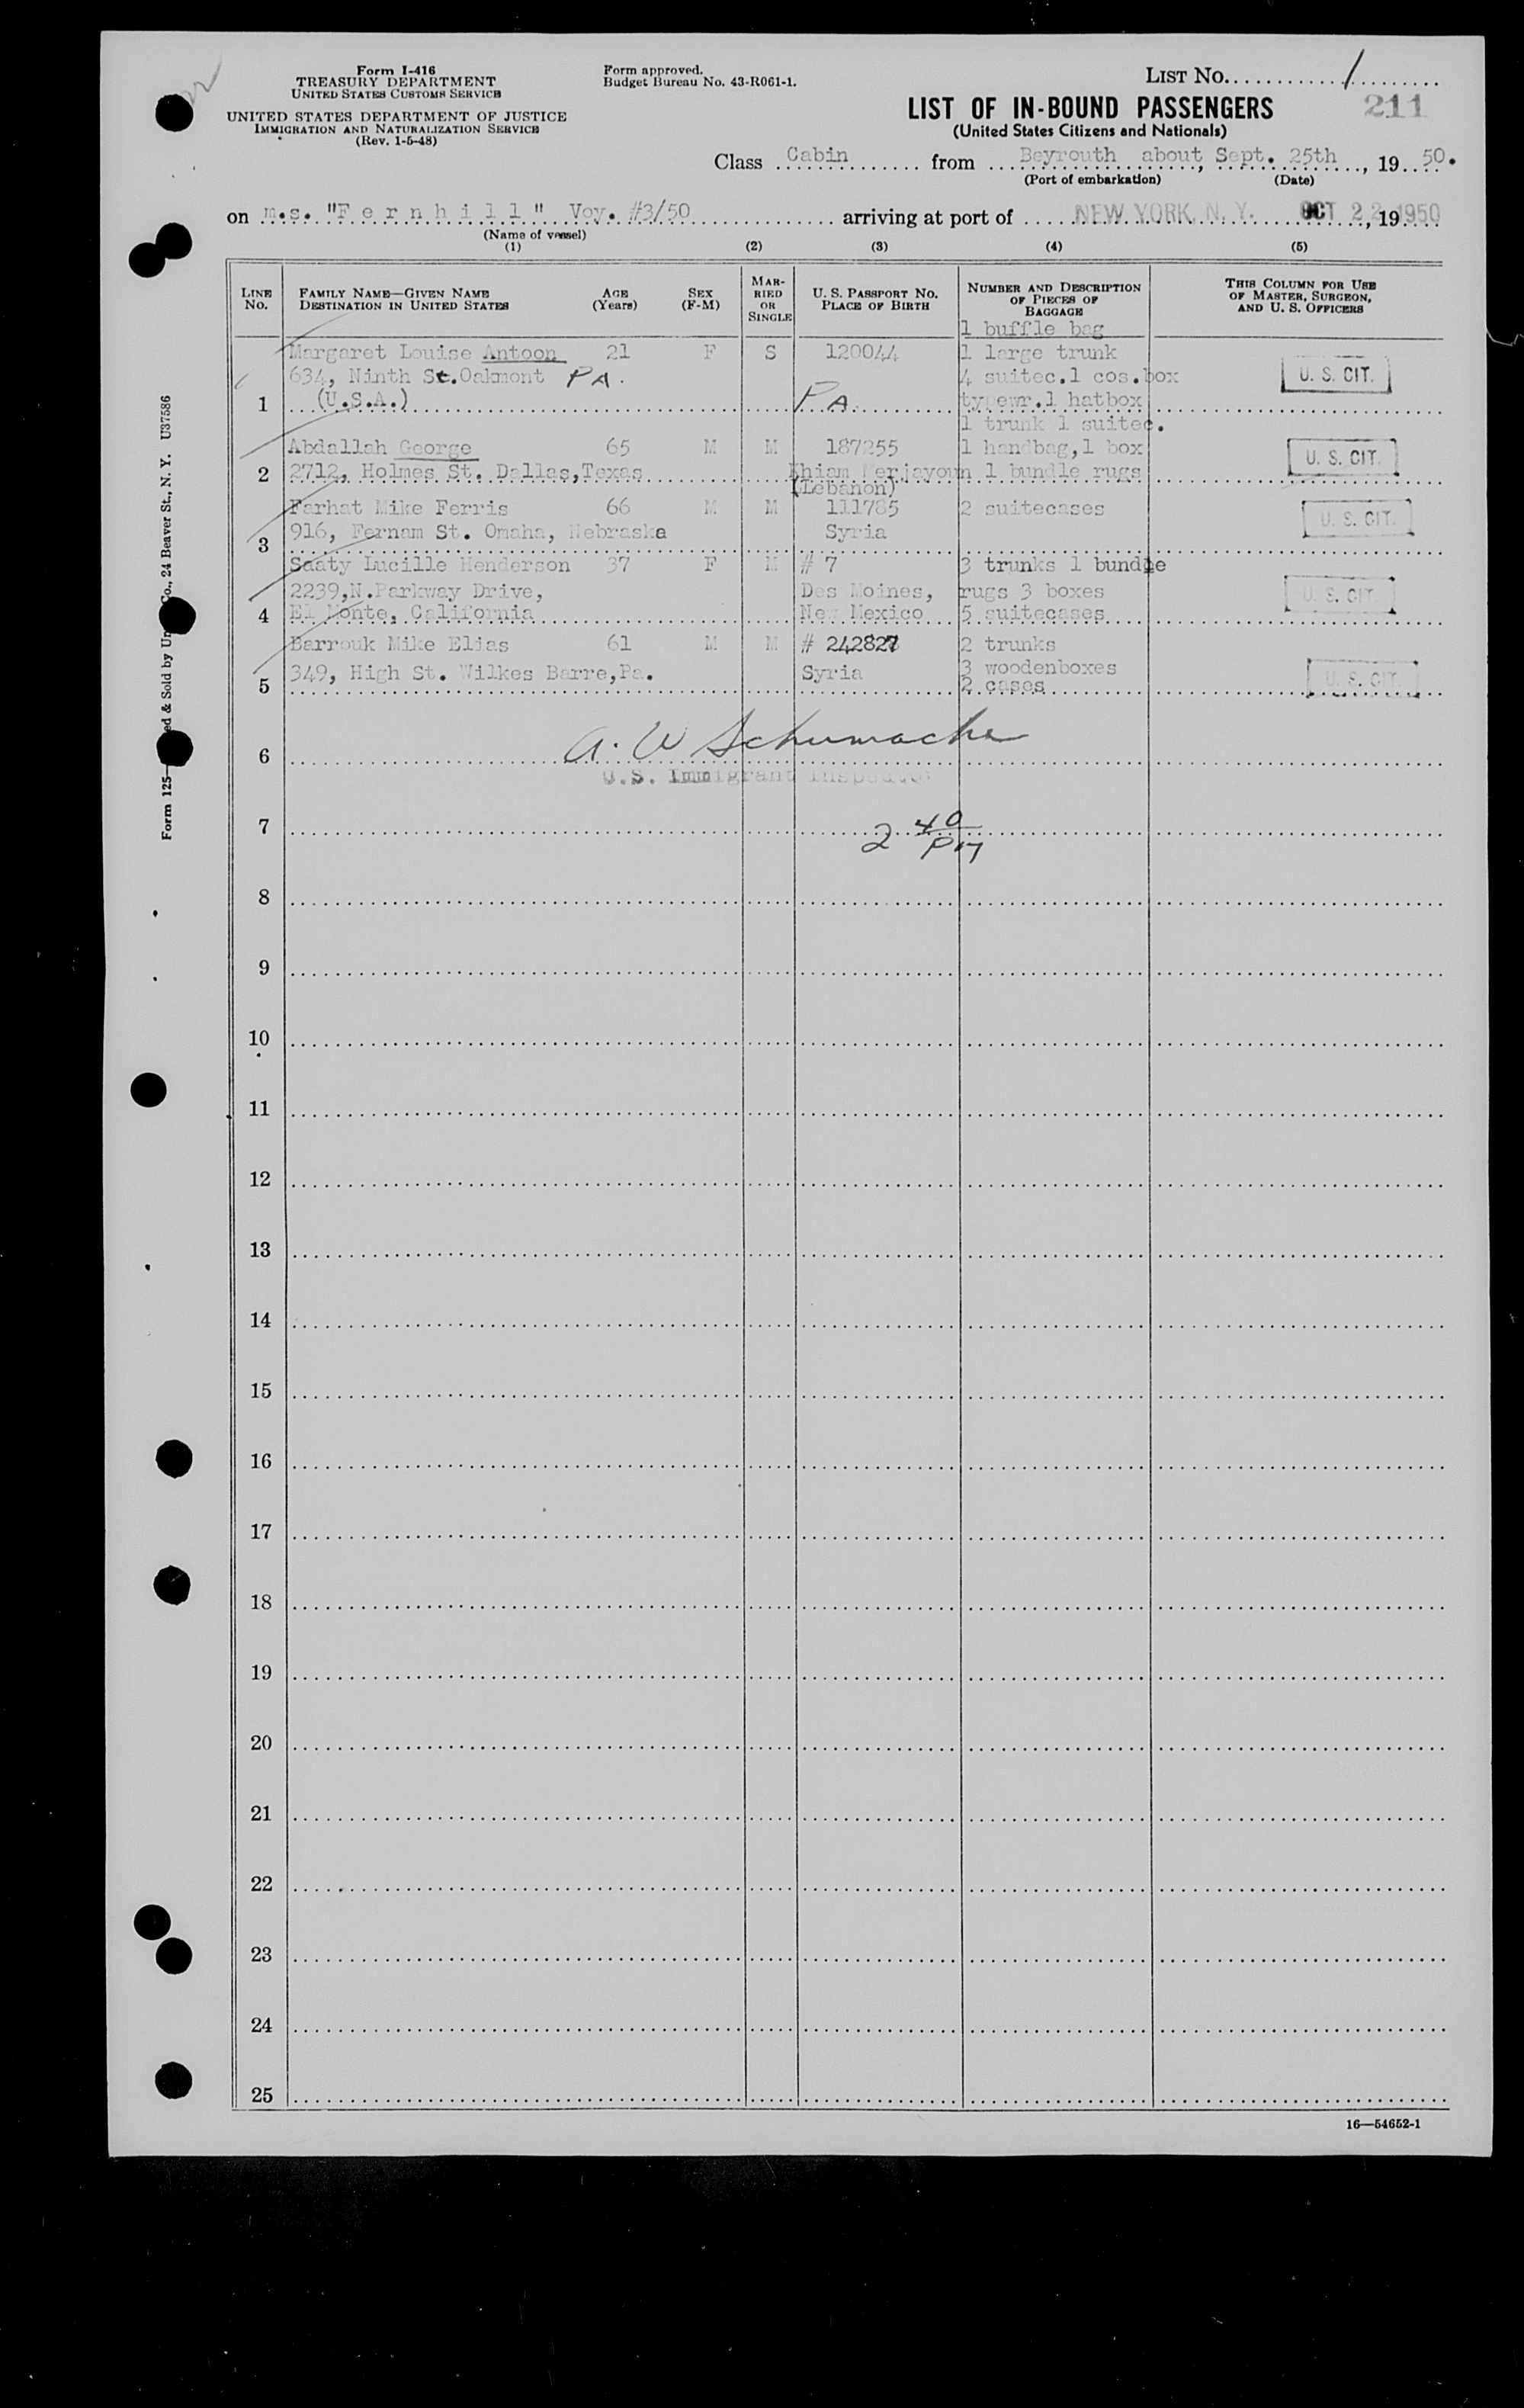 Form I-416
TREASURY DEPARTMENT
UNITED STATES CUSTOMS SERVICE
UNITED STATES DEPARTMENT OF JUSTICE
IMMIGRATION AND NATURALIZATION SERVICE
(Rev. 1-5-48)
Form approved.
Budget Bureau No. 43-R061-1.
LIST NO. 1
211
LIST OF IN-BOUND PASSENGERS
(United States Citizens and Nationals)
Class Cabin from Beyrouth about, Sept. 25th, 19 50.
(Port of embarkation) (Date)
on m.s. "F e r n h i l l" Voy. #3/50 arriving at port of NEW YORK, N. Y. OCT 22, 19 1950
(Name of vessel)
(1) (2) (3) (4) (5)
LINE NO.
FAMILY NAME—GIVEN NAME
DESTINATION IN UNITED STATES
AGE (Years)
SEX (F-M)
MARRIED OR SINGLE
U. S. PASSPORT NO.
PLACE OF BIRTH
NUMBER AND DESCRIPTION OF PIECES OF BAGGAGE
THIS COLUMN FOR USE OF MASTER, SURGEON, AND U. S. OFFICERS
1 buffle bag
Margaret Louise Antoon 21 F S 120044 1 large trunk
634, Ninth St. Oakmont PA. 4 suitec.1 cos.box U. S. CIT.
1 (U.S.A.) PA typewr.1 hatbox
1 trunk 1 suitec.
Abdallah George 65 M M 187255 1 handbag,1 box U. S. CIT.
2 2712, Holmes St. Dallas,Texas Khiam Merjayoun 1 bundle rugs
(Lebanon)
Farhat Mike Ferris 66 M M 111785 2 suitecases U. S. CIT.
916, Fernam St. Omaha, Nebraska Syria
3
Saaty Lucille Henderson 37 F M # 7 3 trunks 1 bundle
2239,N.Parkway Drive, Des Moines, rugs 3 boxes U. S. CIT.
4 El Monte, California New Mexico 5 suitecases
Barrouk Mike Elias 61 M M # 242827 2 trunks
349, High St. Wilkes Barre,Pa. Syria 3 woodenboxes U. S. CIT.
5 2 cases
A. W Schumacher
6
U.S. Immigrant Inspector
7 2 40 PM
8
9
10
11
12
13
14
15
16
17
18
19
20
21
22
23
24
25
16—54652-1
Co., 24 Beaver St., N. Y. U37586
ed & Sold by
Form 125—